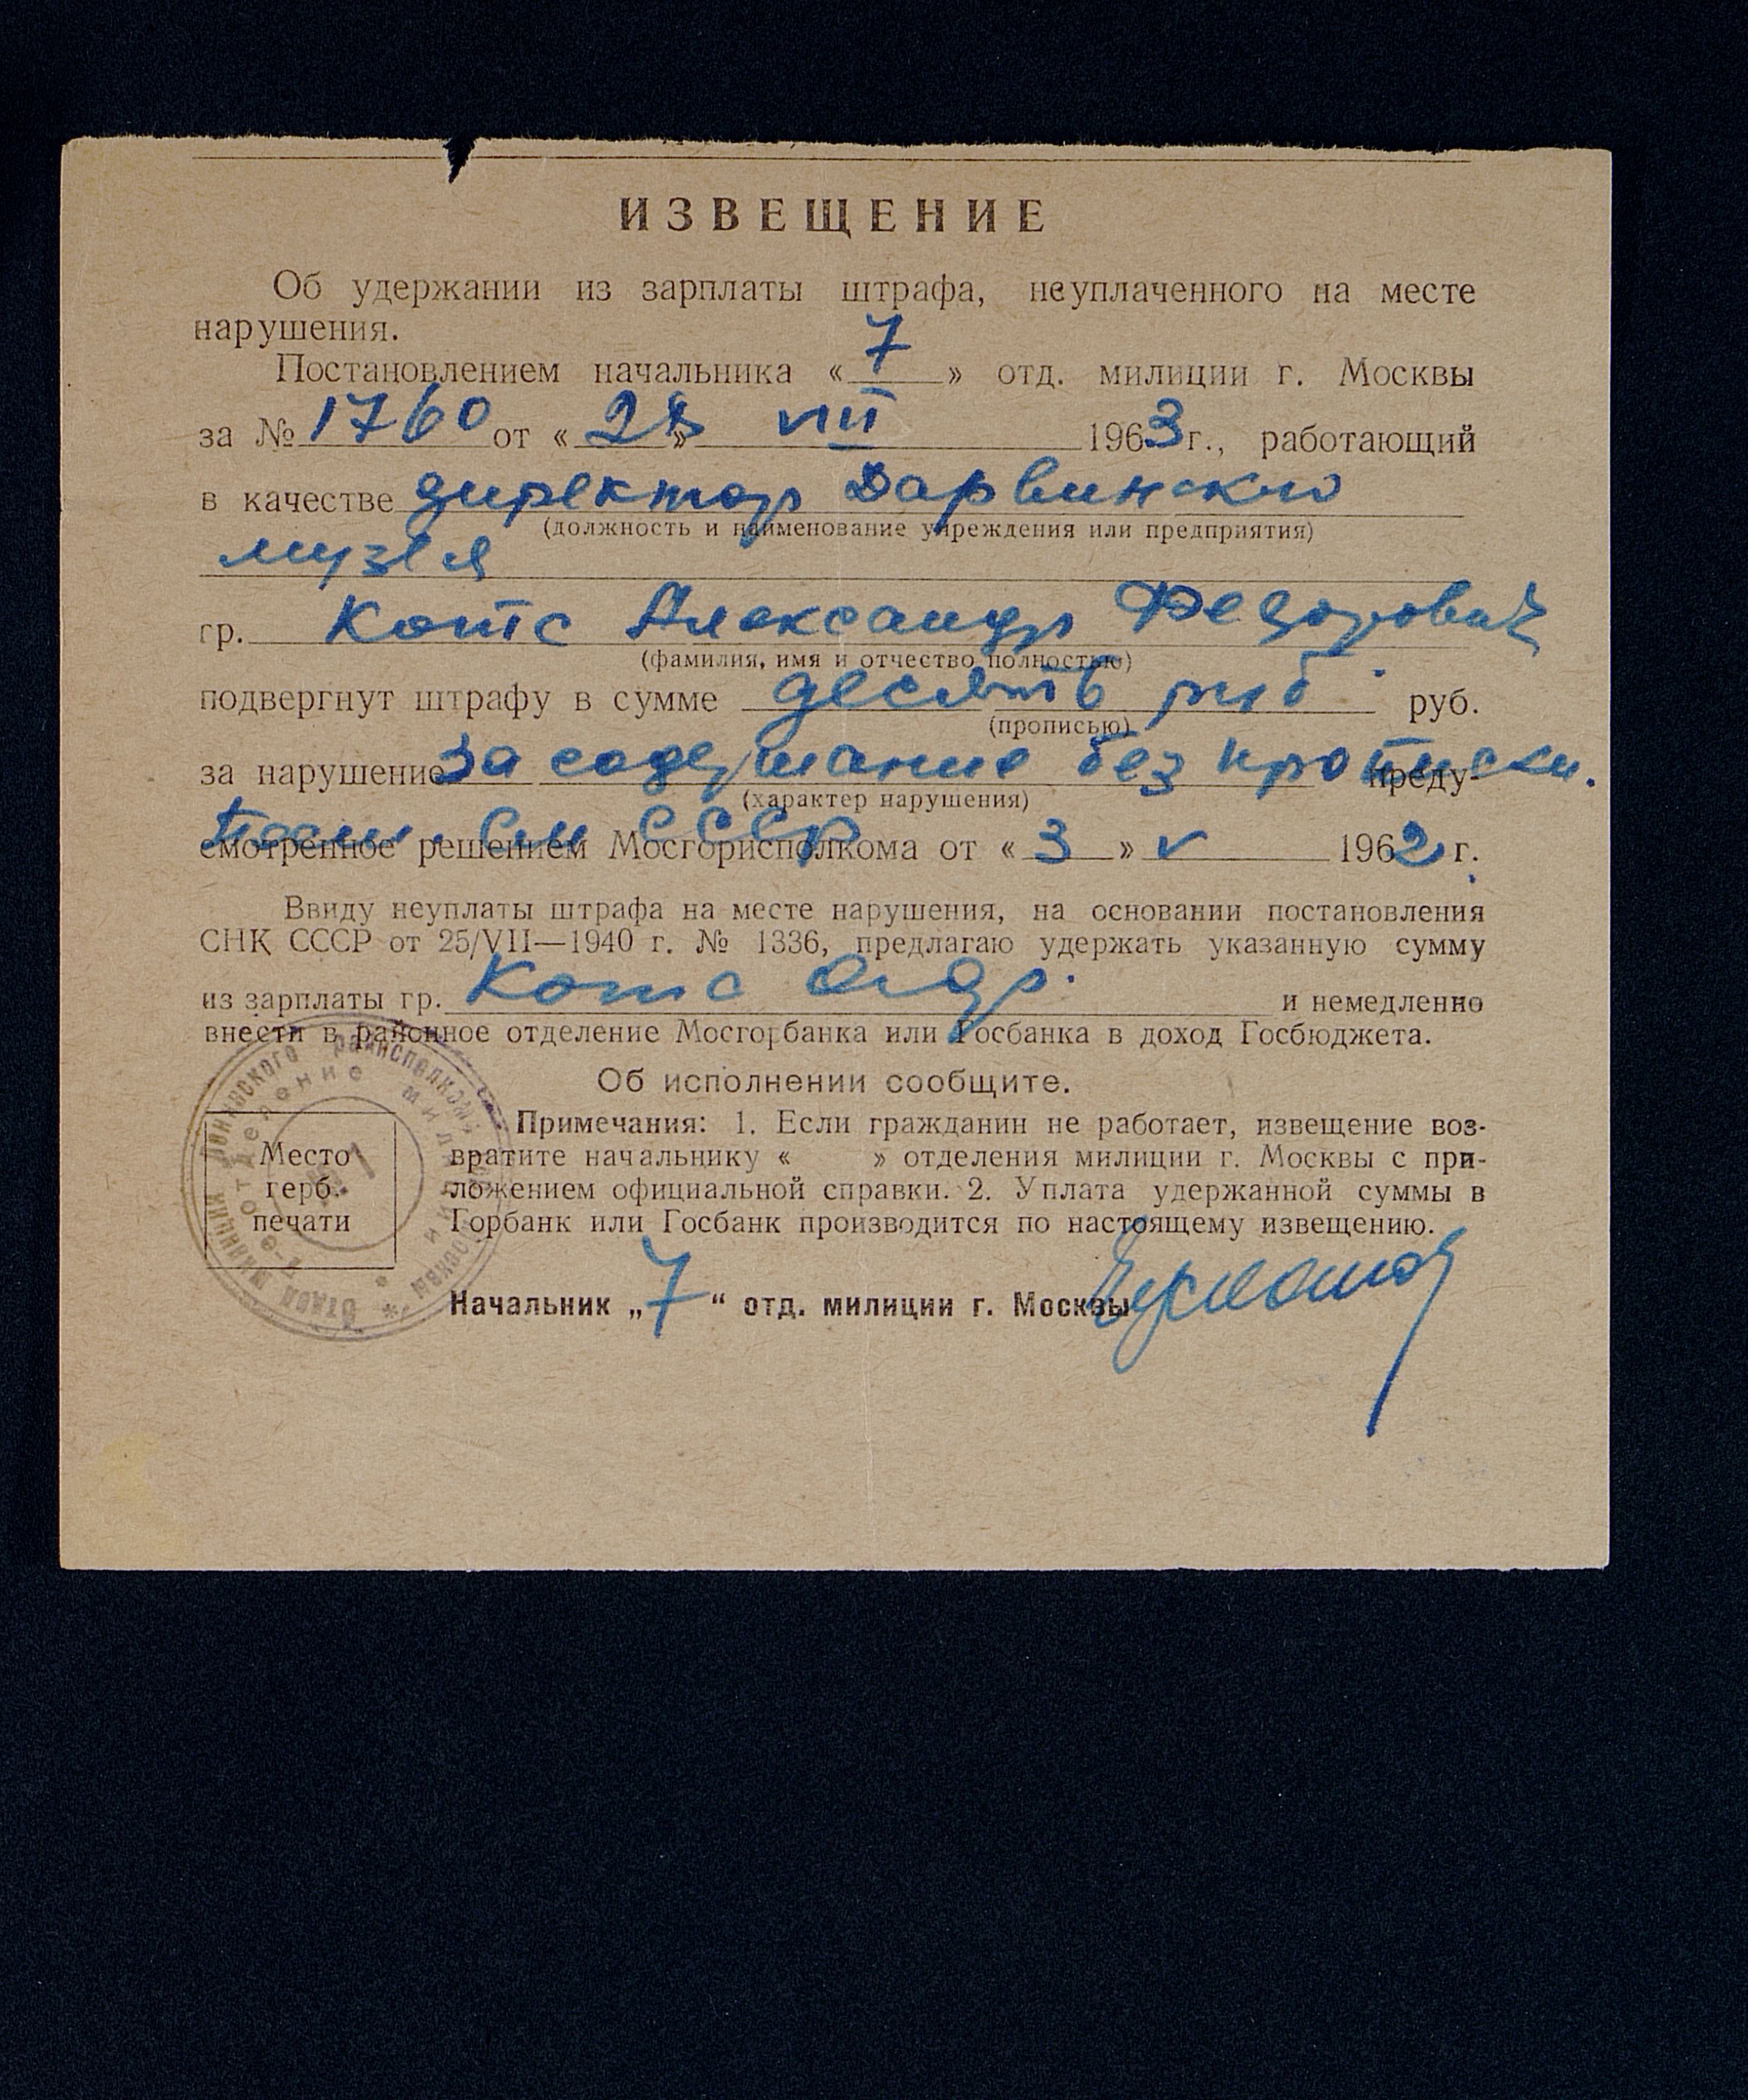 ИЗВЕЩЕНИЕ
Об удержании из зарплаты штрафа, неуплаченного на месте
нарушения.
Постановлением начальника « 7 » отд. милиции г. Москвы
за № 1760 от « 28 » VIII 1963 г., работающий
в качестве директор Дарвинского
(должность и наименование учреждения или предприятия)
музея
гр. Котс Александр Федорович
(фамилия, имя и отчество полностью)
подвергнут штрафу в сумме десять руб руб.
(прописью)
за нарушение за содержание без прописки. преду-
(характер нарушения)
смотренное решением Мосгорисполкома от « 3 » V 1962 г.
См СССР
Ввиду неуплаты штрафа на месте нарушения, на основании постановления
СНК СССР от 25/VII—1940 г. № 1336, предлагаю удержать указанную сумму
из зарплаты гр. Котс и немедленно
внести в районное отделение Мосгорбанка или Госбанка в доход Госбюджета.
Об исполнении сообщите.
Примечания: 1. Если гражданин не работает, извещение воз-
вратите начальнику « » отделения милиции г. Москвы с при-
ложением официальной справки. 2. Уплата удержанной суммы в
Горбанк или Госбанк производится по настоящему извещению.
Место
герб.
печати
Начальник „ 7 “ отд. милиции г. Москвы